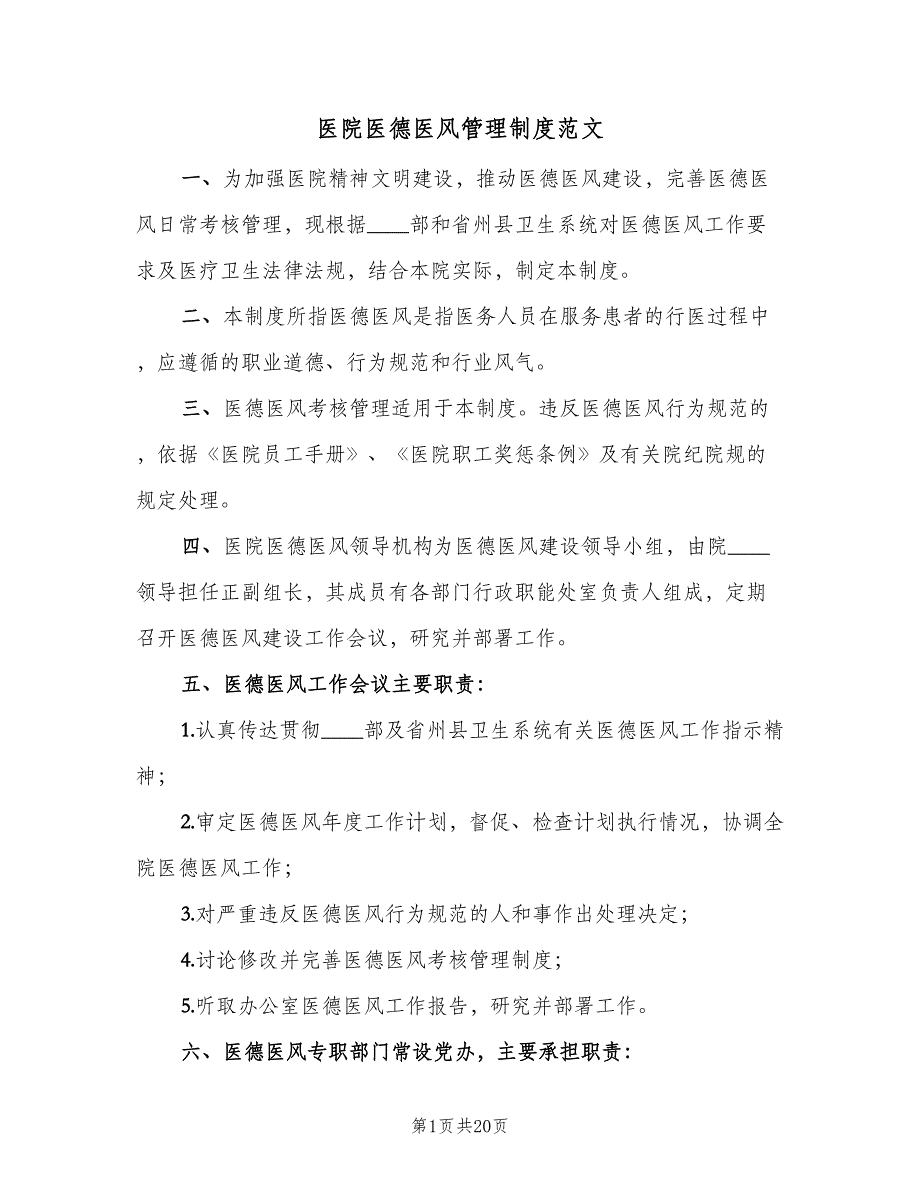 医院医德医风管理制度范文
一、为加强医院精神文明建设，推动医德医风建设，完善医德医
风日常考核管理，现根据____部和省州县卫生系统对医德医风工作要
求及医疗卫生法律法规，结合本院实际，制定本制度。
二、本制度所指医德医风是指医务人员在服务患者的行医过程中
，应遵循的职业道德、行为规范和行业风气。
三、医德医风考核管理适用于本制度。违反医德医风行为规范的
，依据《医院员工手册》、《医院职工奖惩条例》及有关院纪院规的
规定处理。
四、医院医德医风领导机构为医德医风建设领导小组，由院____
领导担任正副组长，其成员有各部门行政职能处室负责人组成，定期
召开医德医风建设工作会议，研究并部署工作。
五、医德医风工作会议主要职责：
1.认真传达贯彻____部及省州县卫生系统有关医德医风工作指示精
神；
2.审定医德医风年度工作计划，督促、检查计划执行情况，协调全
院医德医风工作；
3.对严重违反医德医风行为规范的人和事作出处理决定；
4.讨论修改并完善医德医风考核管理制度；
5.听取办公室医德医风工作报告，研究并部署工作。
六、医德医风专职部门常设党办，主要承担职责：
第1页共20页